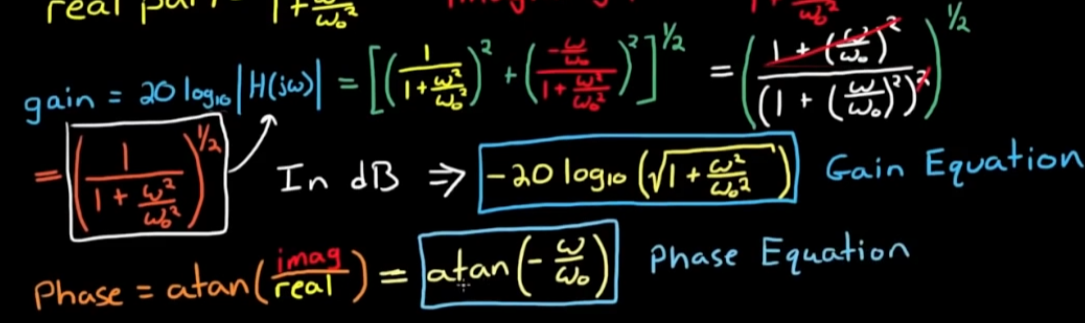 real par 1+ω/ω₀² 1+ω/ω₀²
gain = 20 log₁₀|H(jω)| = [(1/(1+ω²/ω₀²))² + ((-ω/ω₀)/(1+ω²/ω₀²))²]^1/2 = ((1+(ω/ω₀)²)/(1+(ω/ω₀)²)²)^1/2
= (1/(1+ω²/ω₀²))^1/2 In dB ⇒ -20 log₁₀(√(1+ω²/ω₀²)) Gain Equation
Phase = atan(imag/real) = atan(-ω/ω₀) Phase Equation